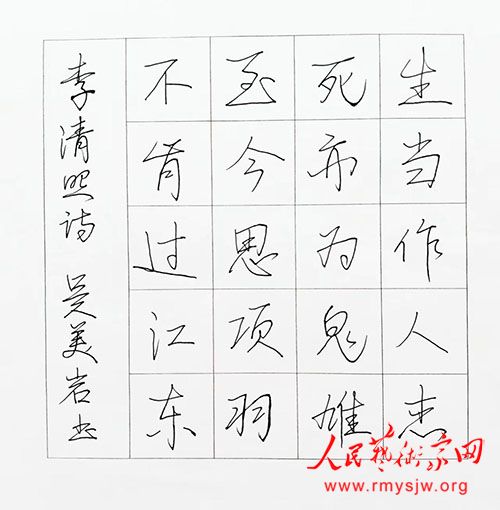 生当作人杰
死亦为鬼雄
至今思项羽
不肯过江东
李清照诗 吴美岩书
人民艺术家网
www.rmysjw.org